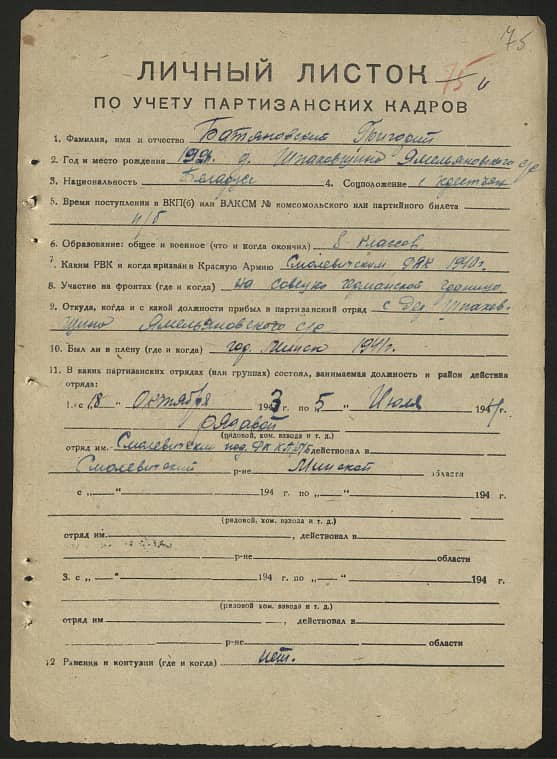 75
ЛИЧНЫЙ ЛИСТОК 75
ПО УЧЕТУ ПАРТИЗАНСКИХ КАДРОВ
1. Фамилия, имя и отчество Батяновский Григорий
2. Год и место рождения д. Шпаковщина Ямельяновского с/с
3. Национальность Беларус 4. Соцположение с крестьян
5. Время поступления в ВКП(б) или ВЛКСМ № комсомольского или партийного билета
н/б
6. Образование: общее и военное (что и когда окончил) 8 классов
7. Каким РВК и когда призван в Красную Армию Смолевичским РВК 1940г.
8. Участие на фронтах (где и когда) На советско германской границе
9. Откуда, когда и с какой должности прибыл в партизанский отряд с дер Шпаков-
щина Ямельяновского с/с
10. Был ли в плену (где и когда) год. Минск 1941г.
11. В каких партизанских отрядах (или группах) состоял, занимаемая должность и район действия
отряда:
1. с „18 " Октября 1943 г. по „5 " Июля 1944 г.
рядовой
(рядовой, ком. взвода и т. д.)
отряд им. Смолевичским под. РК КП(б)Б действовал в
Смолевичский р-не Минской области
с „ " 194 г. по „ " 194 г.
(рядовой, ком. взвода и т. д.)
отряд им. , действовал в
р-не области
3. с „ " 194 г. по „ " 194 г.
(рядовой, ком. взвода и т. д.)
отряд им , действовал в
р-не области
12 Ранения и контузии (где и когда) нет.